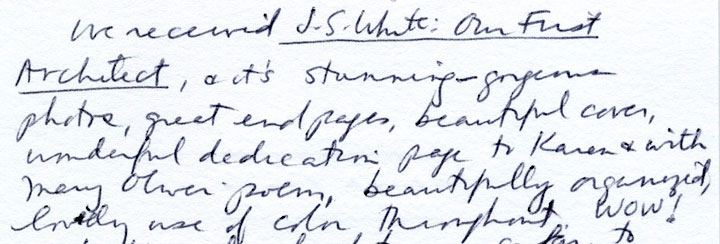 We received J.S. White: Our First
Architect, & it's stunning - gorgeous
photos, great end pages, beautiful cover,
wonderful dedication page to Karen & with
Mary Oliver poem, beautifully organized,
lovely use of color throughout. WOW!